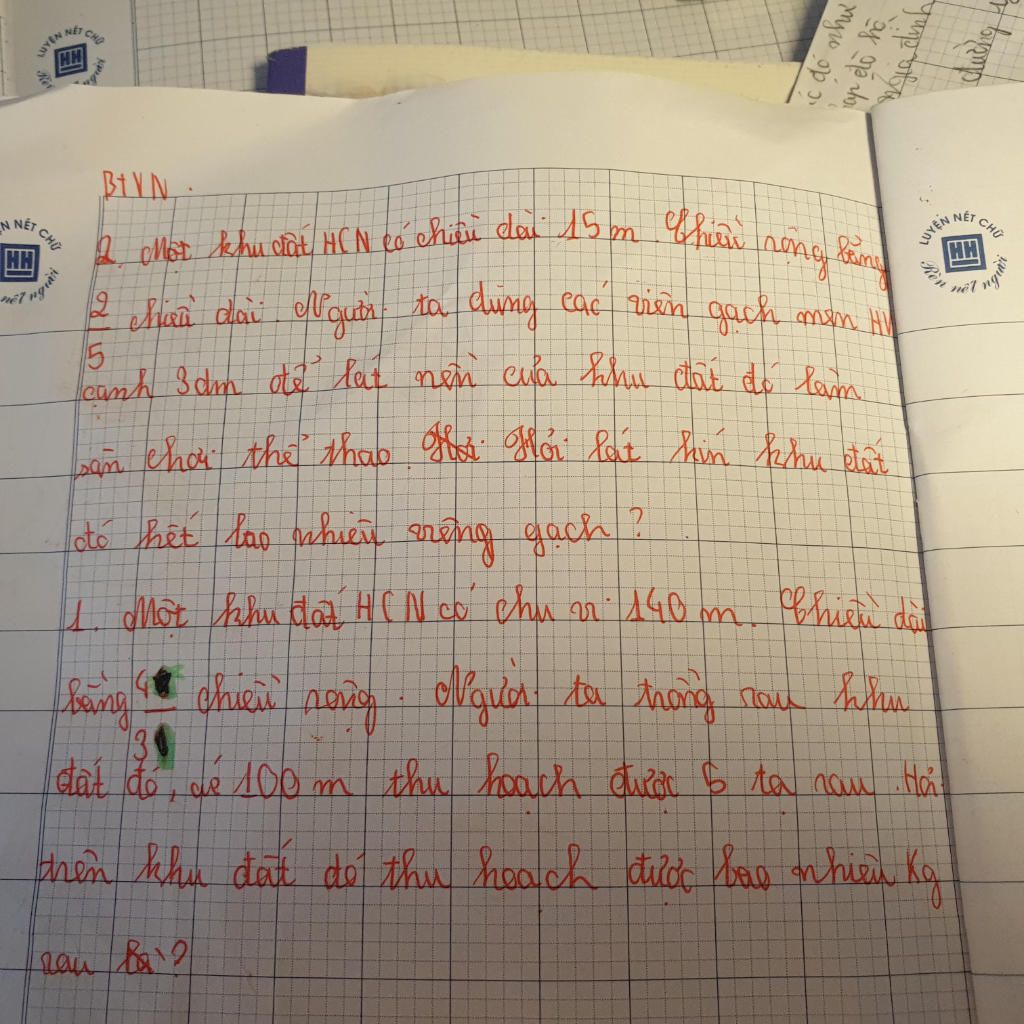 LUYỆN NÉT CHỮ
HH
Rèn nết người
ác đó như
nap đô hô
ngia định
đường
BTVN.
2. Một khu đất HCN có chiều dài 15m. Chiều rộng bằng
2/5 chiều dài. Người ta dùng các viên gạch men HV
cạnh 3dm để lát nền của khu đất đó làm
sân chơi thể thao. Hỏi Hỏi lát kín khu đất
đó hết bao nhiêu viêng gạch?
1. Một khu đất HCN có chu vi 140 m. Chiều dài
bằng 4/3 chiều rộng. Người ta trồng rau khu
đất đó, cứ 100 m thu hoạch được 5 tạ rau. Hỏi
trên khu đất đó thu hoạch được bao nhiêu Kg
rau
N NÉT CHỮ
HH
nết người
LUYỆN NÉT CHỮ
HH
Rèn nết người